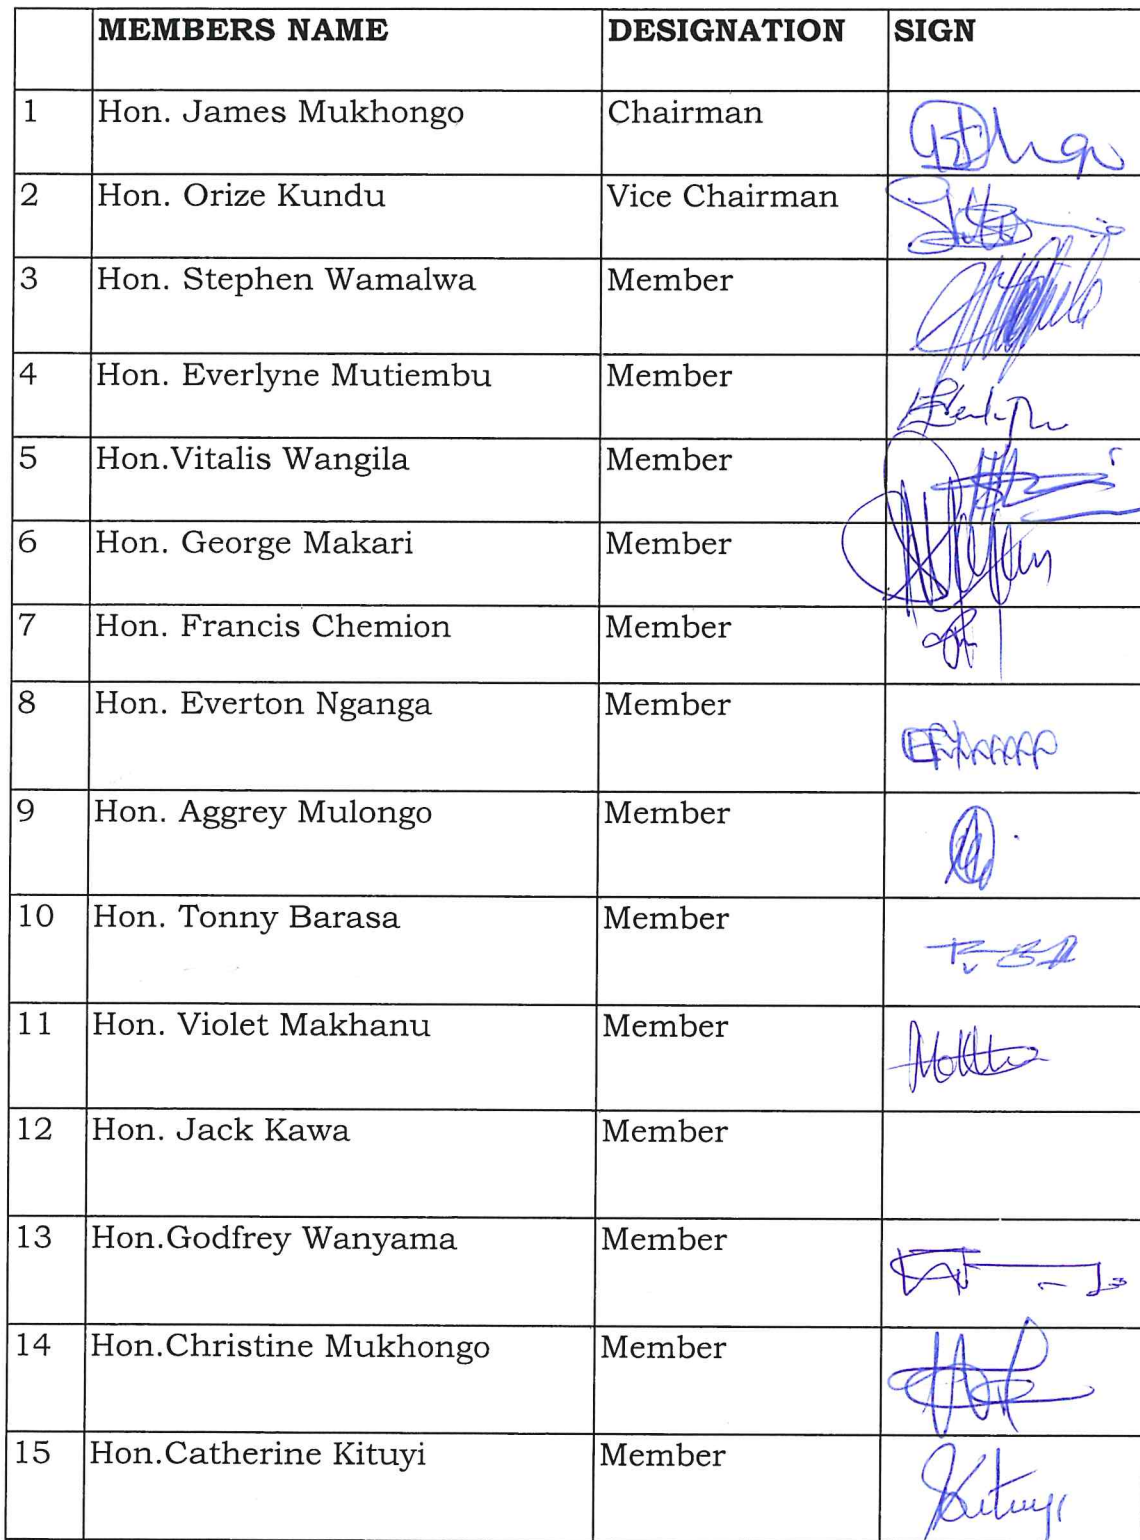 MEMBERS NAME DESIGNATION SIGN
1 Hon. James Mukhongo Chairman
2 Hon. Orize Kundu Vice Chairman
3 Hon. Stephen Wamalwa Member
4 Hon. Everlyne Mutiembu Member
5 Hon.Vitalis Wangila Member
6 Hon. George Makari Member
7 Hon. Francis Chemion Member
8 Hon. Everton Nganga Member
9 Hon. Aggrey Mulongo Member
10 Hon. Tonny Barasa Member
11 Hon. Violet Makhanu Member
12 Hon. Jack Kawa Member
13 Hon.Godfrey Wanyama Member
14 Hon.Christine Mukhongo Member
15 Hon.Catherine Kituyi Member Kituyi